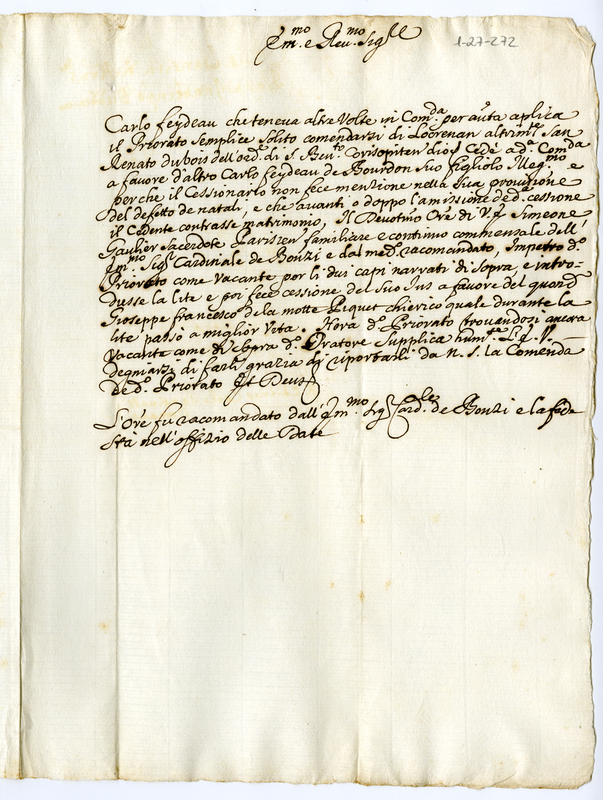 Em.mo e Reu.mo Sig.re
1-27-272
Carlo feydeau che teneva altre Volte in Com.da per auta aplica
il Priorato Semplice Solito comendarsi di Locrenan altrim.te San
Renato dubois dell'ord.e di S. Ben.to Corisopiten dioj Cedé ad.a Com.da
a favore d'altro Carlo feydeau de Bourdon Suo figliolo Mag.mo e
perche il Cessionario non fece menzione nella Sua provisione
del defetto de natali, e che avanti o doppo l'amissione ded.a cessione
il Cedente contrasse matrimonio, Il Devotmo Ore di V. Simeone
Gaulier Sacerdote Parisien familiare e continuo commensale dell'
Em.mo Sig.r Cardinale de Bonzi e dal med.o racomandato, Impetrò d.o
Priorato come vacante por li dui capi narrati di Sopra, e intro-
dusse la lite e poi fece cessione del Suo Ius a favore del quond
Gioseppe francesco de la motte Piquet chierico quale durante la
lite passò a miglior Vita. Hora d.o Priorato trouandosi ancora
Vacante come di Sopra d.o Oratore Supplica hum.te V.
degniarsi di farli grazia di riportarli da N. S. la Comenda
ded.o Priorato Deus
L'Ore fu racomandato dall'Em.mo Sig.r Card.le de Bonzi e la fede
stà nell'offizio delle Date